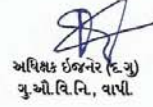 અધિક્ષક ઇજનેર (દ.ગુ)
ગુ.ઔ.વિ.નિ., વાપી.